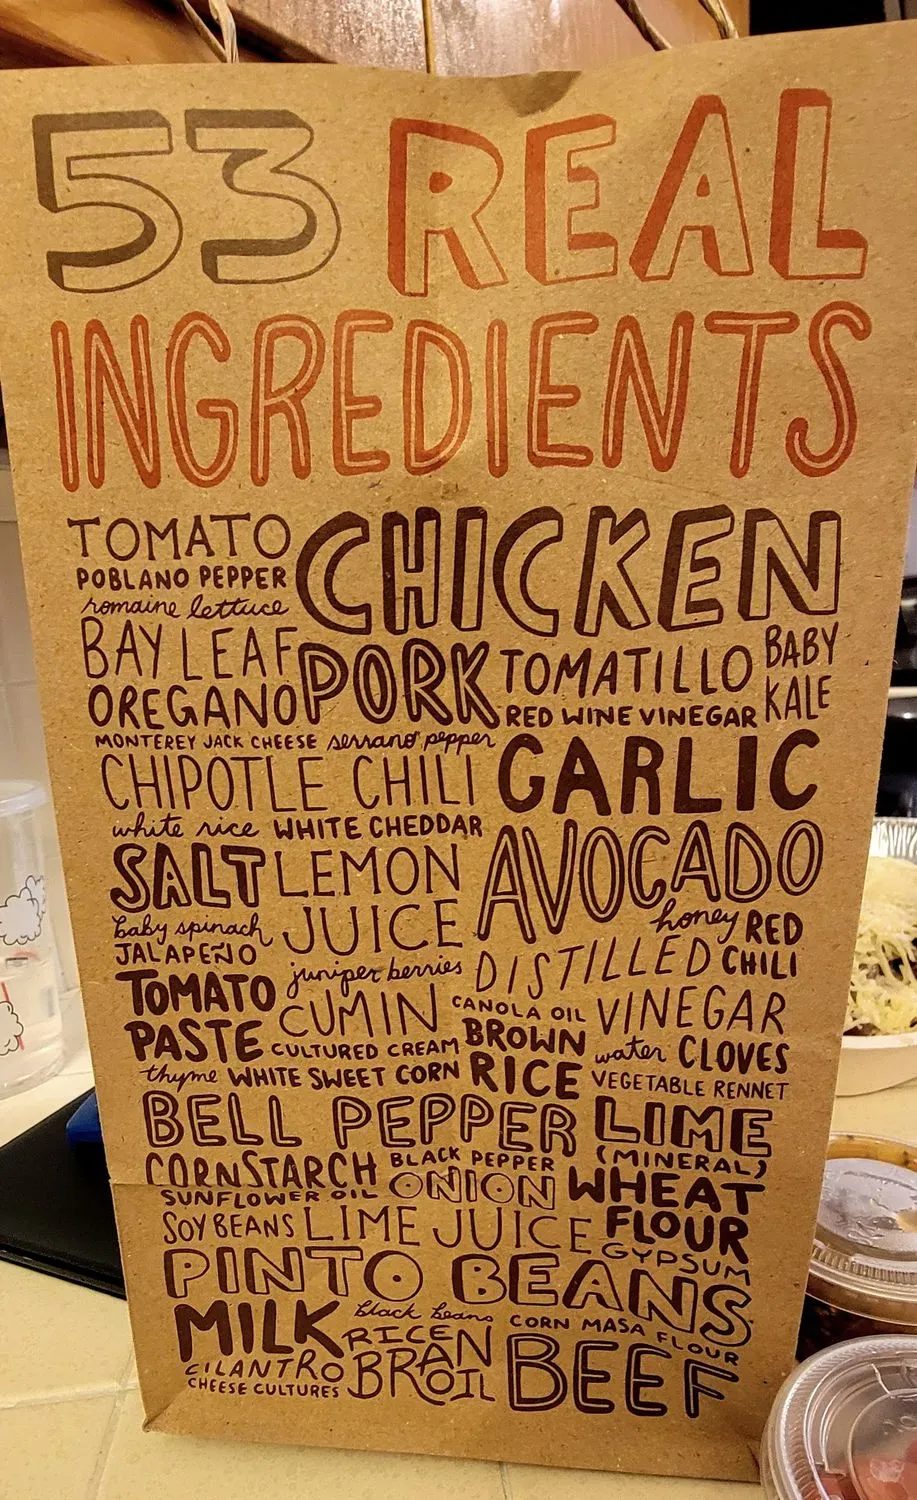 53 REAL
INGREDIENTS
TOMATO
POBLANO PEPPER
romaine lettuce
CHICKEN
BAY LEAF
OREGANO
PORK
TOMATILLO
RED WINE VINEGAR
BABY
KALE
MONTEREY JACK CHEESE serrano pepper
CHIPOTLE CHILI
GARLIC
white rice WHITE CHEDDAR
SALT
LEMON
JUICE
AVOCADO
baby spinach
JALAPEÑO
honey RED
CHILI
juniper berries
DISTILLED
VINEGAR
TOMATO
PASTE
CUMIN
CANOLA OIL
CULTURED CREAM
BROWN
RICE
water CLOVES
thyme WHITE SWEET CORN
VEGETABLE RENNET
BELL PEPPER
LIME
(MINERAL)
CORNSTARCH
BLACK PEPPER
SUNFLOWER OIL
ONION
WHEAT
FLOUR
SOYBEANS
LIME JUICE
GYPSUM
PINTO BEANS
MILK
black beans
CORN MASA FLOUR
RICE
BRAN
OIL
CILANTRO
CHEESE CULTURES
BEEF